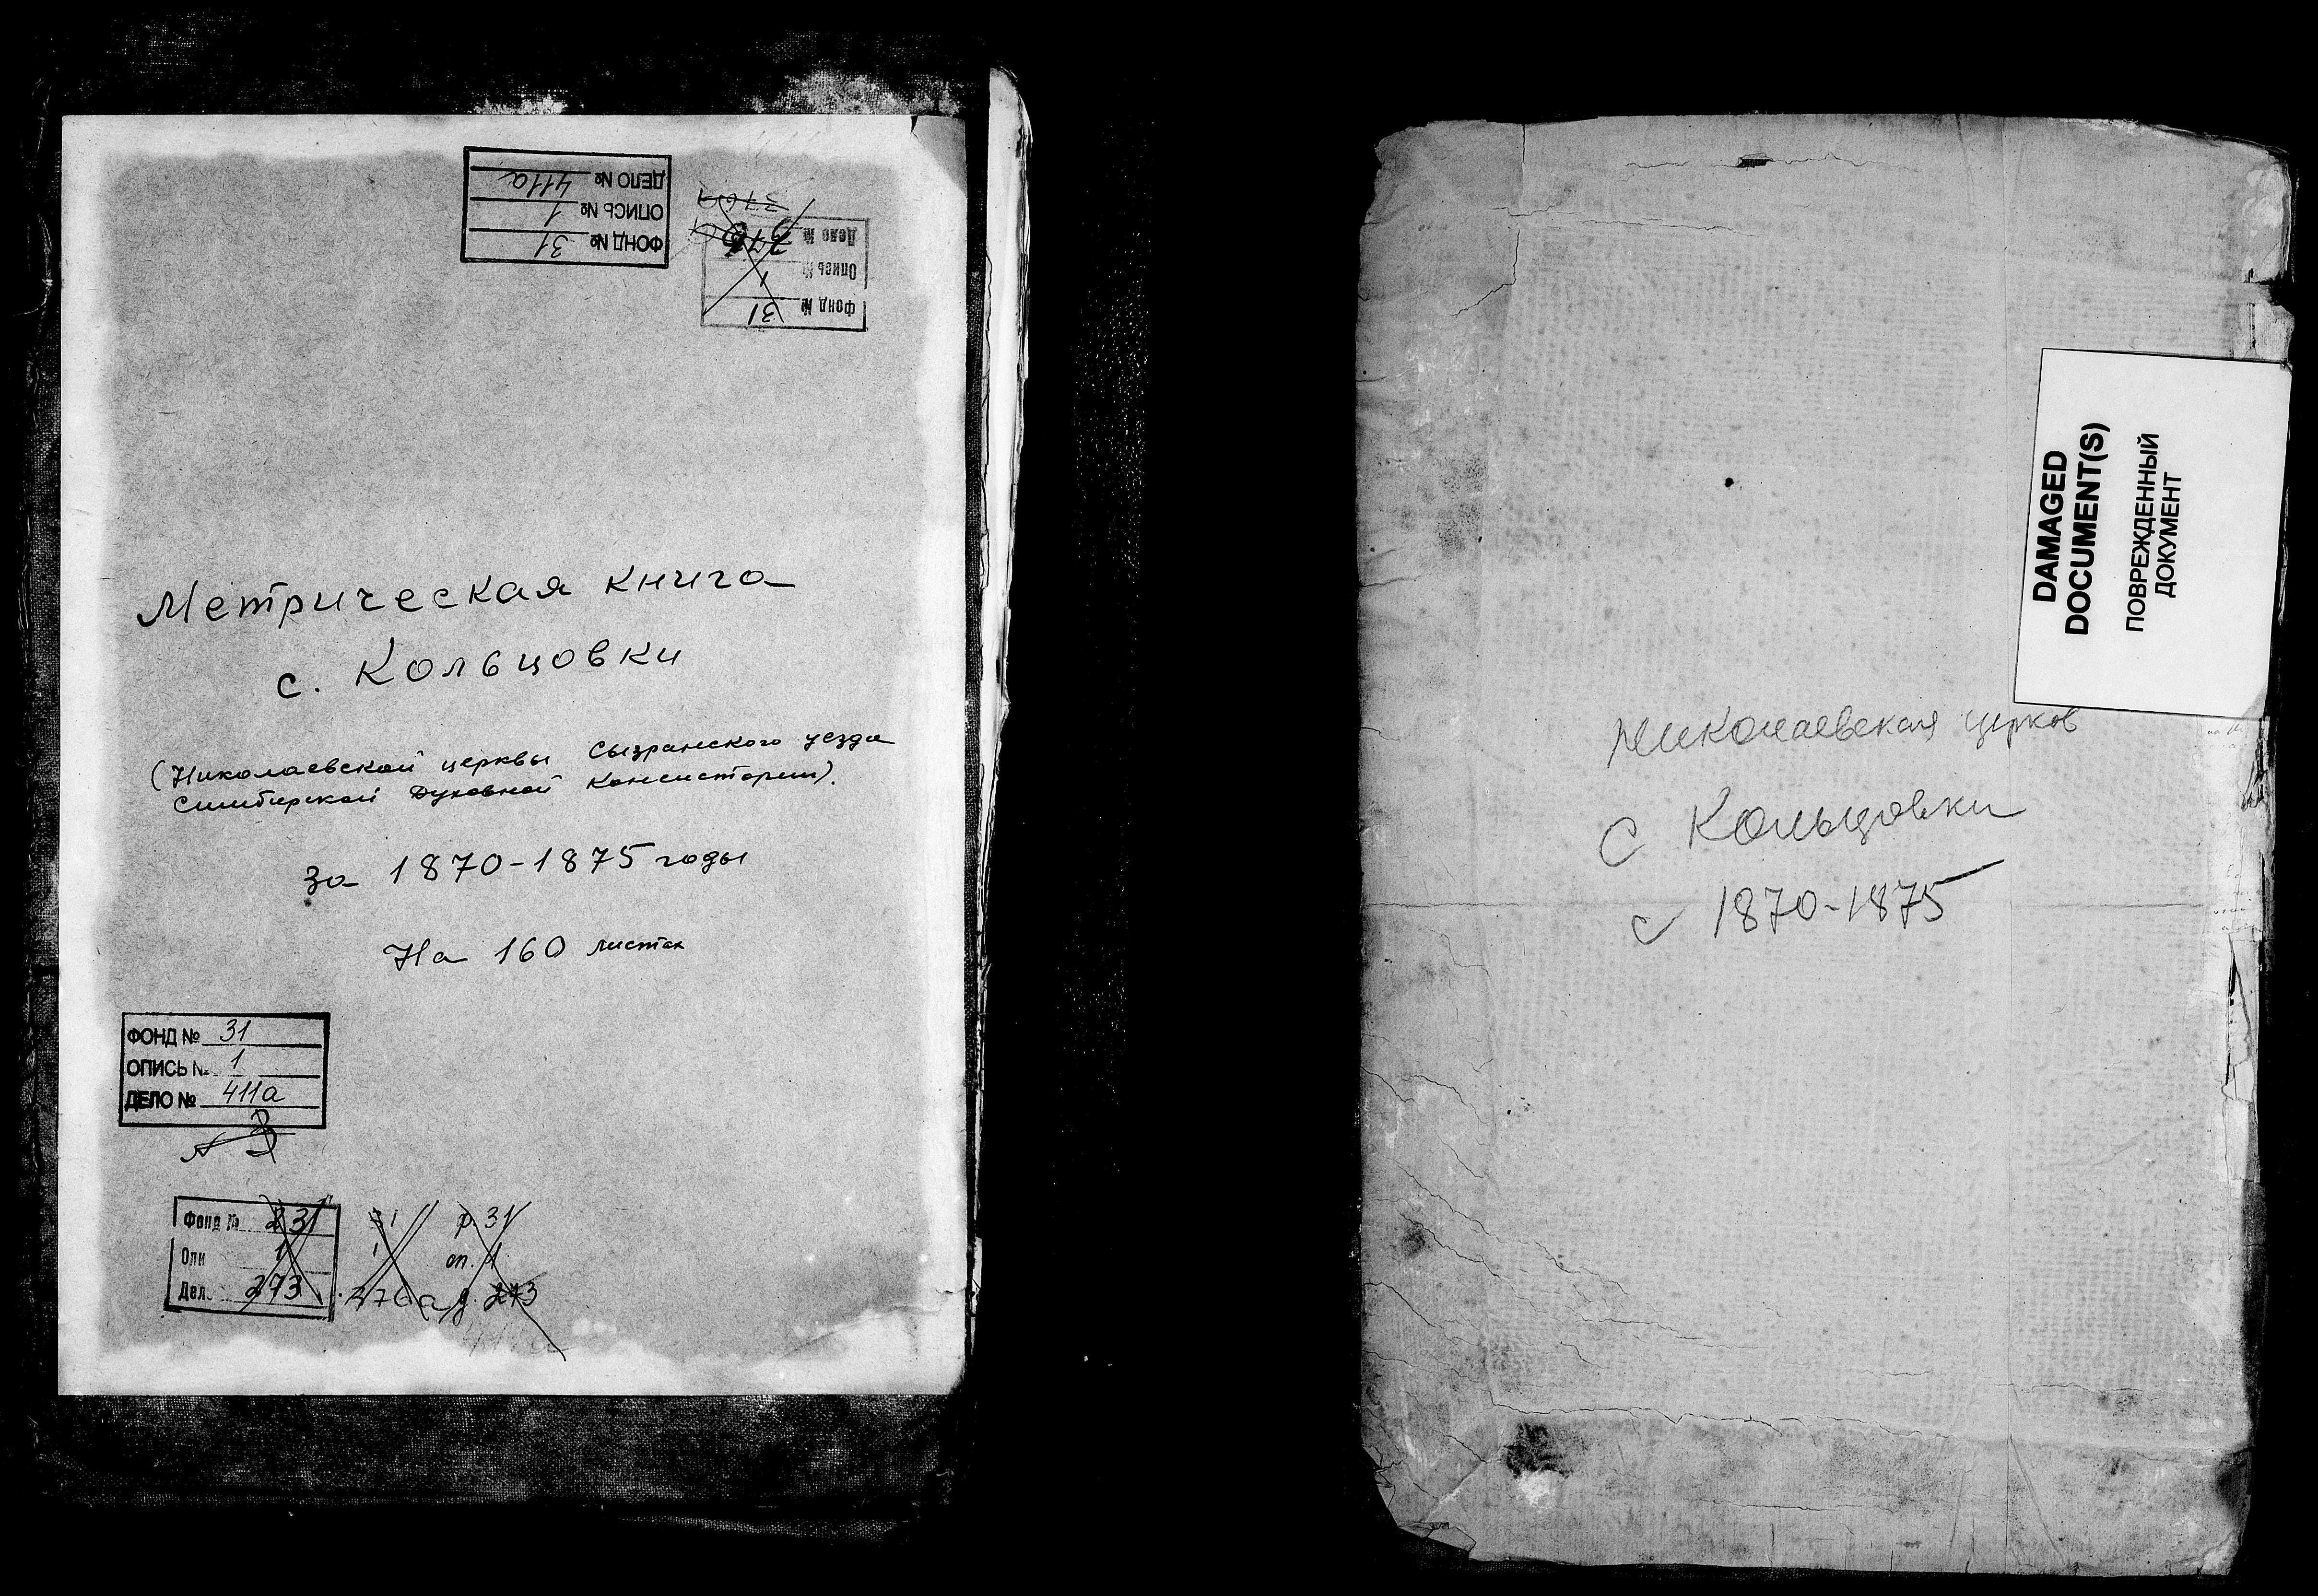 ФОНД № 31
ОПИСЬ № 1
ДЕЛО № 411а
Фонд № 31
Опись № 1
Дело №
376а
Метрическая книга
с. Кольцовки
(Николаевской церквы Сызранского уезда
Симбирской Духовной Консистории).
за 1870-1875 годы
На 160 листах
ФОНД № 31
ОПИСЬ № 1
ДЕЛО № 411а
Фонд № 231
Опи 1
Дел. 273
31
1
376а
ф. 31
оп. 1
д. 273
DAMAGED
DOCUMENT(S)
ПОВРЕЖДЕННЫЙ
ДОКУМЕНТ
Николаевская церков
с Кольцовки
с 1870-1875